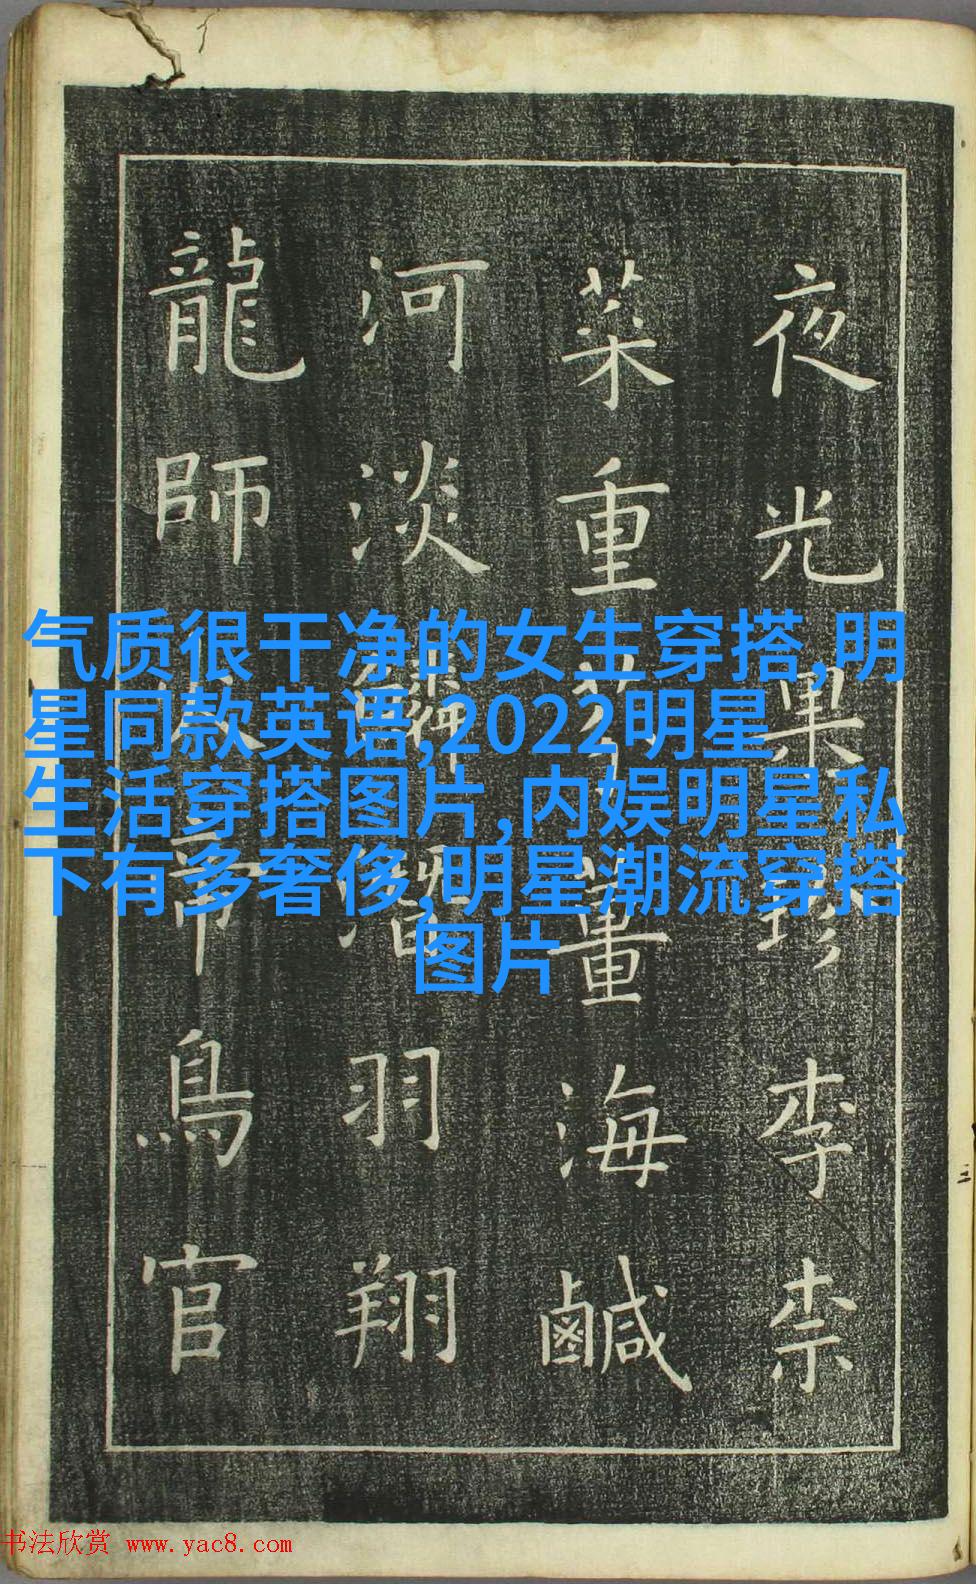 夜光果珍李柰
菜重芥薑海鹹
河淡鱗潛羽翔
龍師火帝鳥官
气质很干净的女生穿搭,明
星同款英语,2022明星
生活穿搭图片,内娱明星私
下有多奢侈,明星潮流穿搭
图片
书法欣赏 www.yac8.com